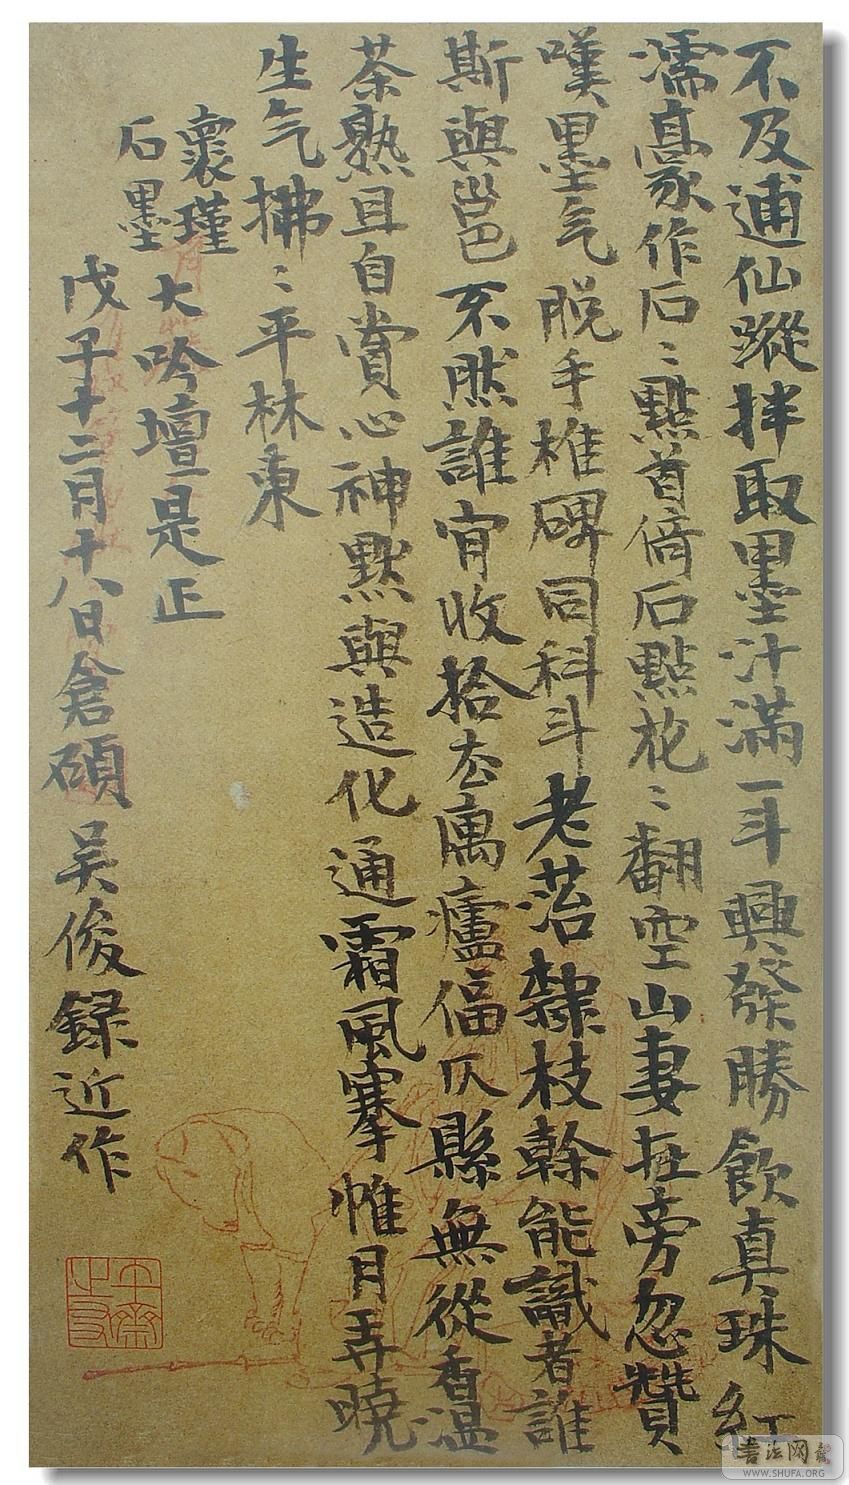 不及逋仙蹤拌取墨汁滿一斗興發勝飲真珠紅
濡豪作石〻點首倚石點花〻翻空山妻在旁忽贊
嘆墨气脱手椎碑同科斗老榦隸枝幹能識者誰
斯與邕不然誰肯收拾去寓廬偪仄縣無從香温
茶熟且自賞心神默與造化通霜風搴帷月弄曉
生气拂〻平林東
裹瑾
石墨
大吟壇是正
戊子十二月十八日倉碩吴俊録近作
書法网
WWW.SHUFA.ORG